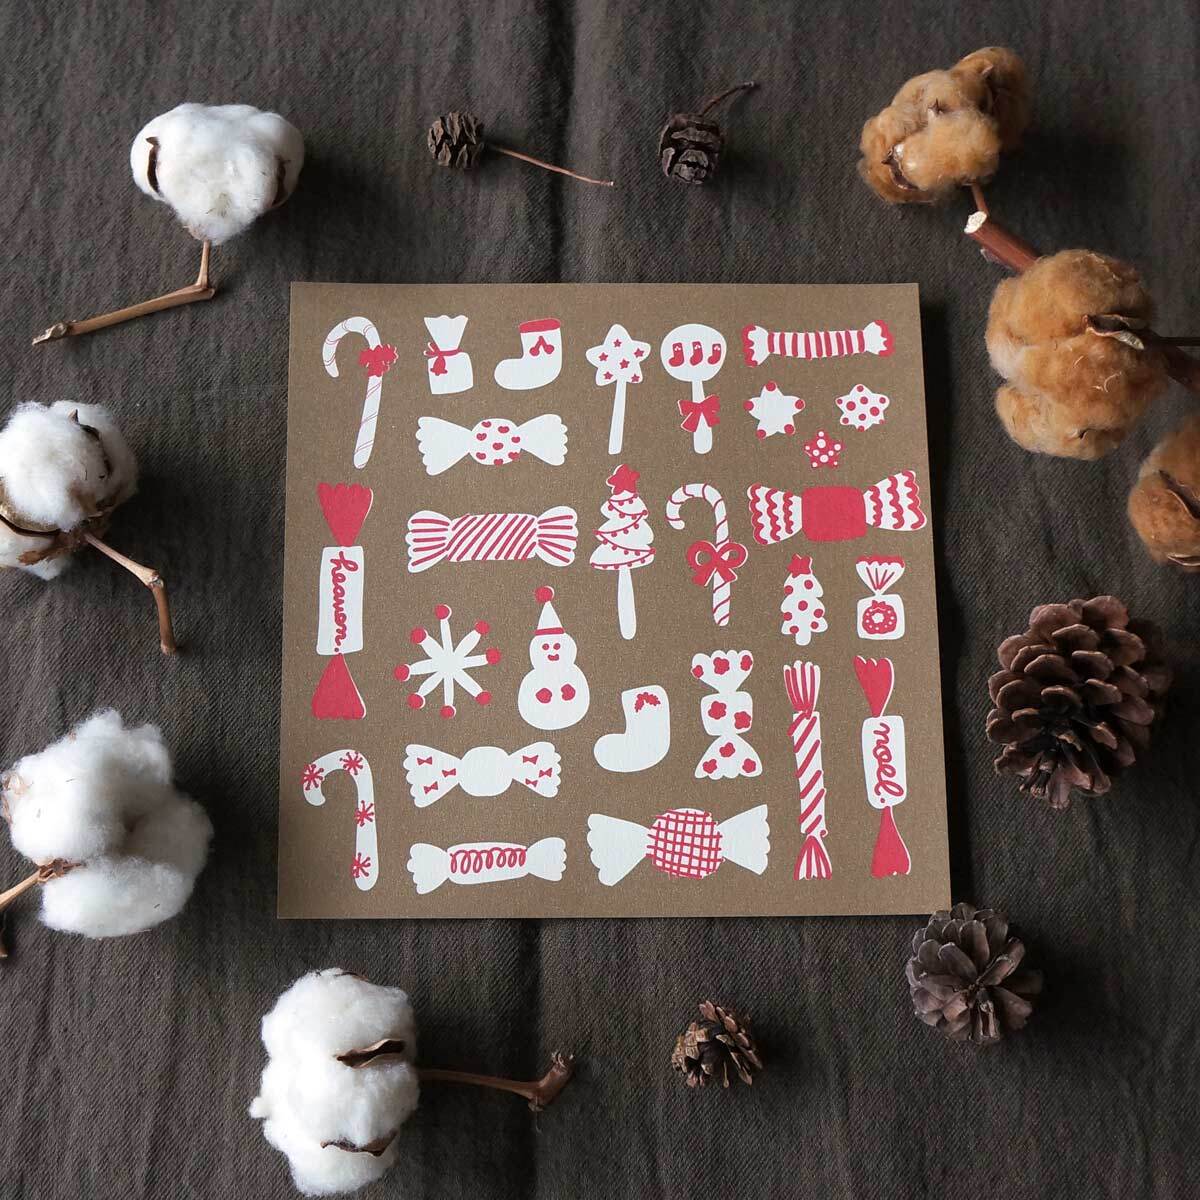 heavon.
moel.